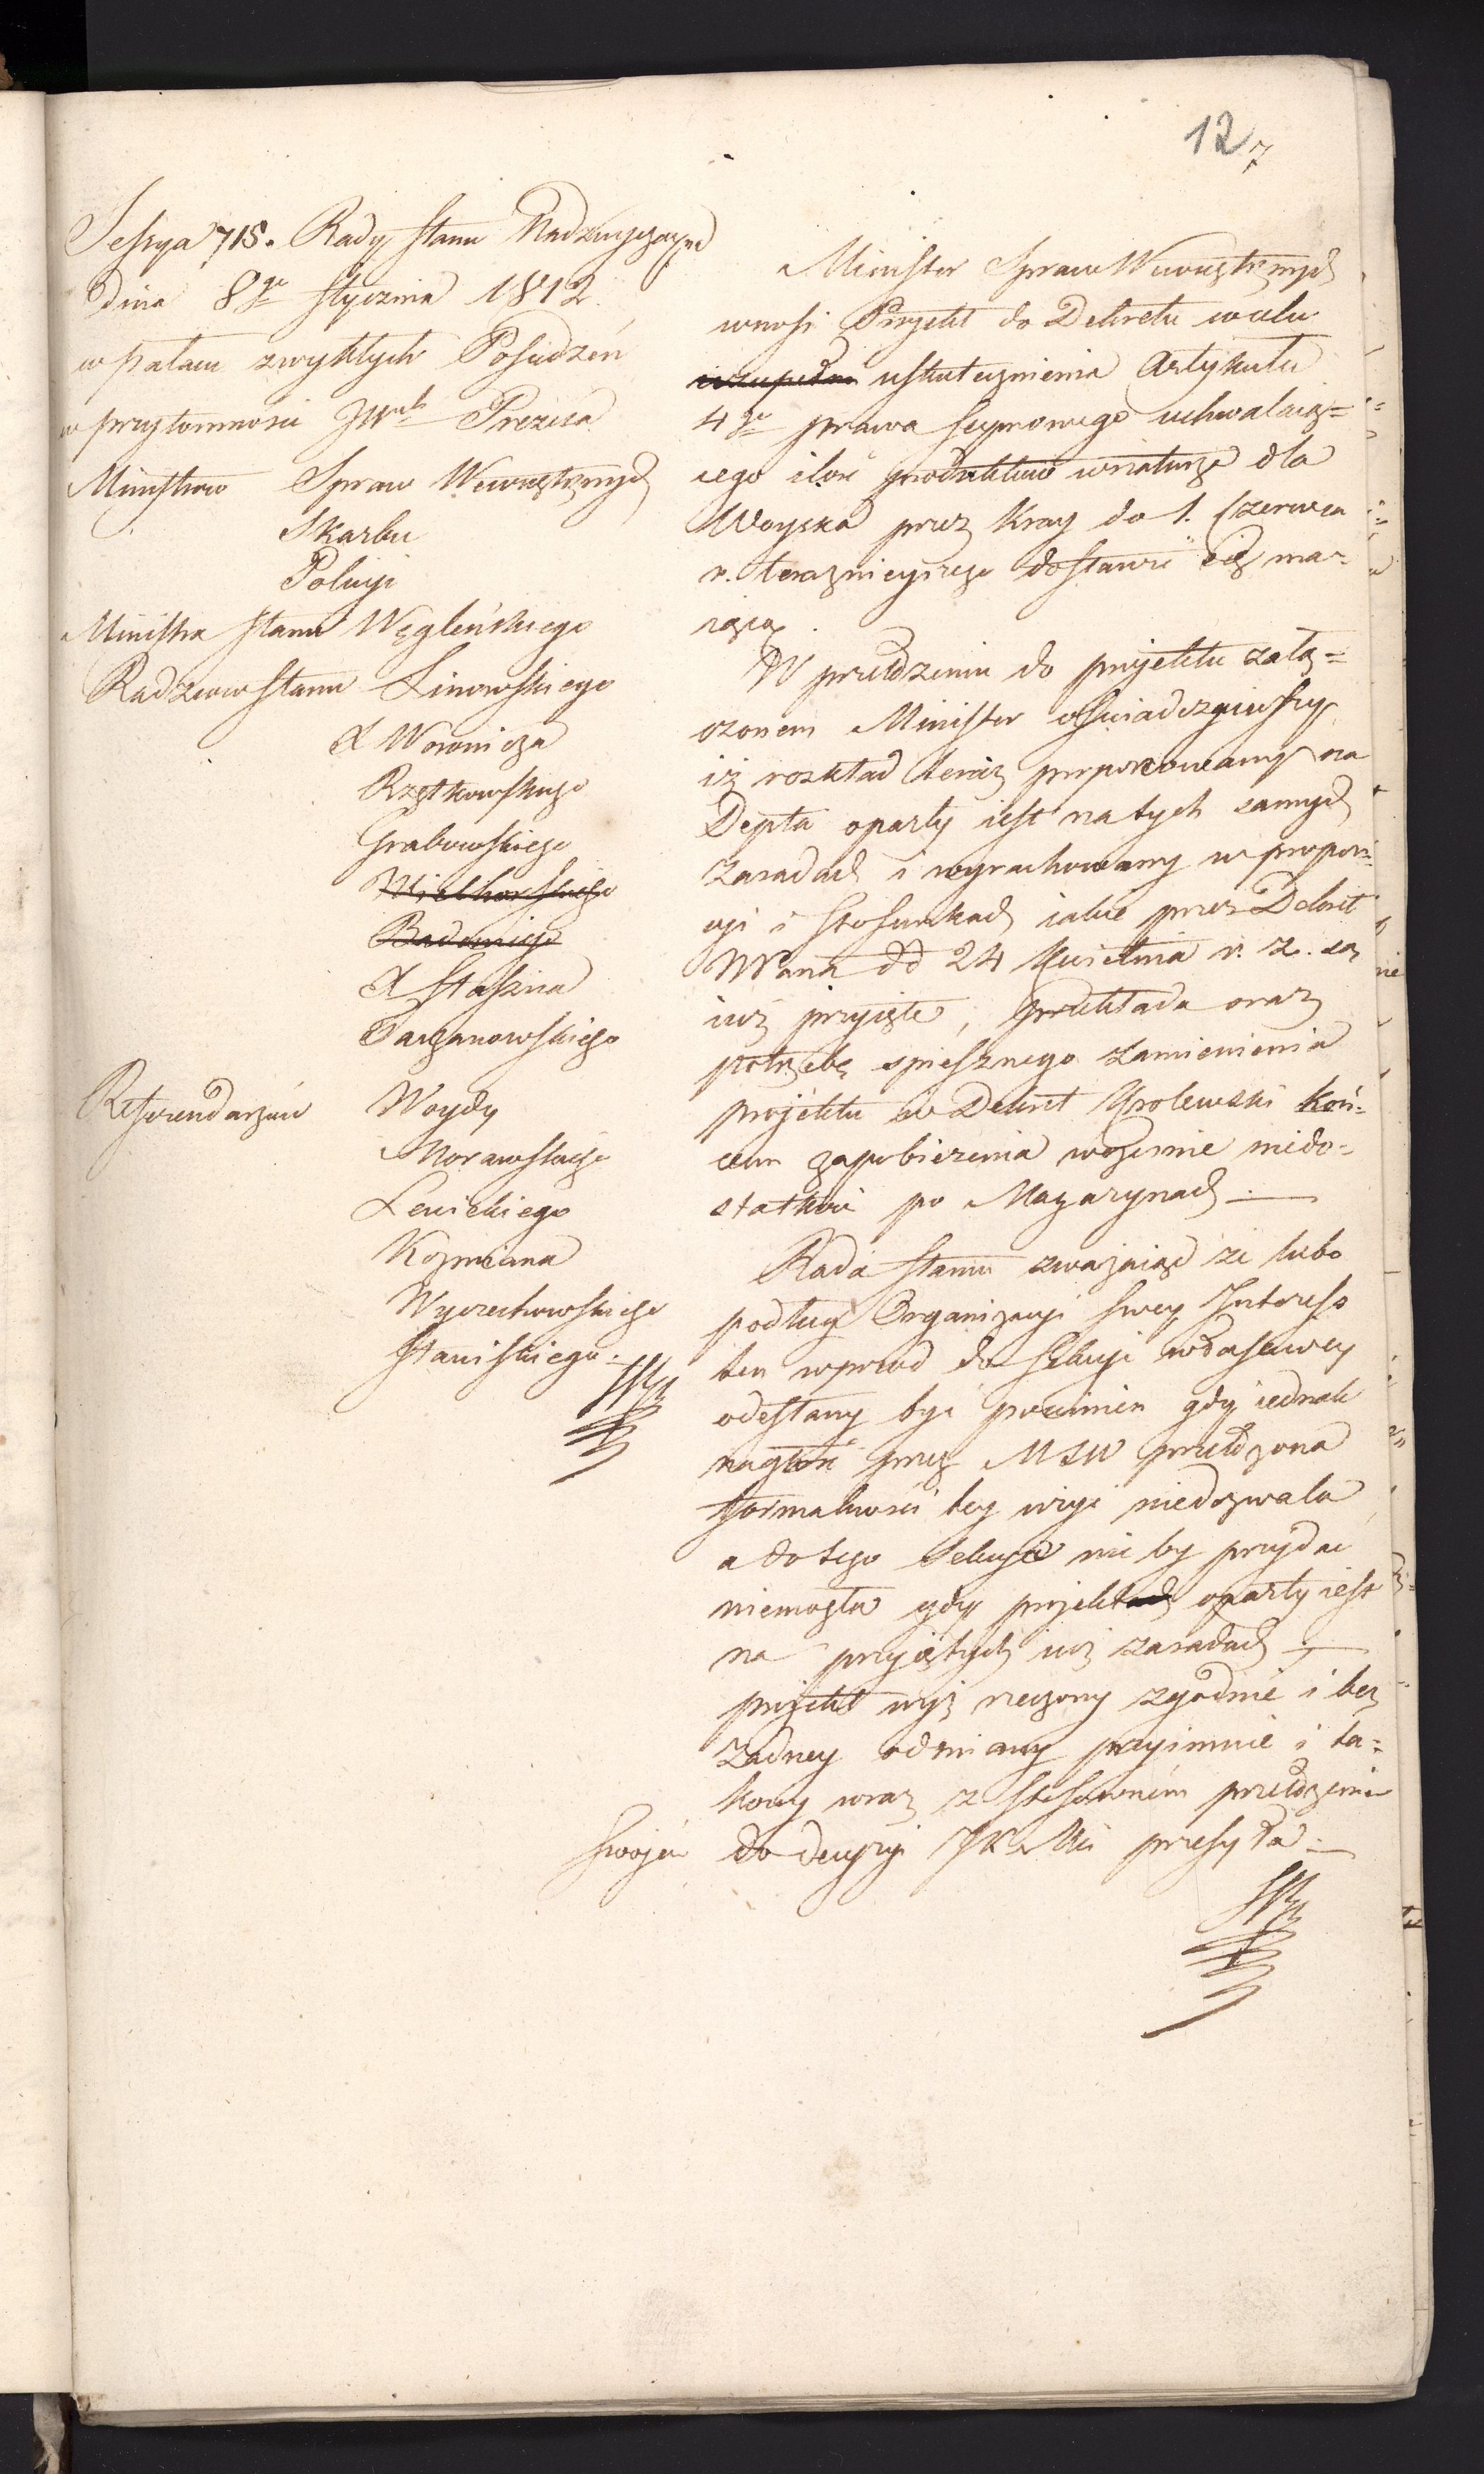 127
Sessya 715. Rady Stanu Nadzwyczayna
dnia 8go Stycznia 1812.
w pałacu zwykłych Posiedzeń
w przytomności JWnch Prezesa
Ministrow Spraw Wewnętrznych
Skarbu
Policyi
Ministra Stanu Węgleńskiego
Radzcow Stanu Linowskiego
X Woronicza
Rzętkowskiego
Grabowskiego
Wielhorskiego
Badeniego
X Staszica
Tarczanowskiego
Referendarzów Woydy
Morawskiego
Lewickiego
Kozmiana
Wyczechowskiego
Staniskiego.
Minister Spraw Wewnętrznych
wnosi Projekt do Dekretu w celu
uskutecznienia Artykułu
4go prawa seymowego uchwalaią=
cego ilość produktów w naturze dla
Woyska przez Kray do 1. Czerwca
r. teraznieyszego dostawić się ma=
iącą.
W przełożeniu do projektu załą=
czonem Minister oświadczywszy,
iż rozkład teraz proponowany na
Depta oparty iest na tych samych
zasadach i wyrachowany w propor=
cyi i Stosunkach iakie przez Dekret
NPana dd 24 Kwietnia r. z. są
iuż przyięte, przekłada oraz
potrzebę spiesznego zamienienia
projektu w Dekret Krolewski koń=
cem zapobieżenia wcześnie niedo=
statkowi po Magazynach.
Rada Stanu zważaiąc że lubo
podług Organizacyi swey Interess
ten wprzod do Sekcyi właściwey
odesłany być powinien gdy iednak
nagłość przez MSW przełożona
formalności tey użyć niedozwala
a do tego Sekcya nic by przydać
niemogła gdyż projekt oparty iest
na przyiętych iuż zasadach.
projekt wyż rzeczony zgodnie i bez
żadney odmiany przyimuie i ta=
kowy wraz z stosownem przełożeniem
swojém do decyzyi JKMci przesyła.